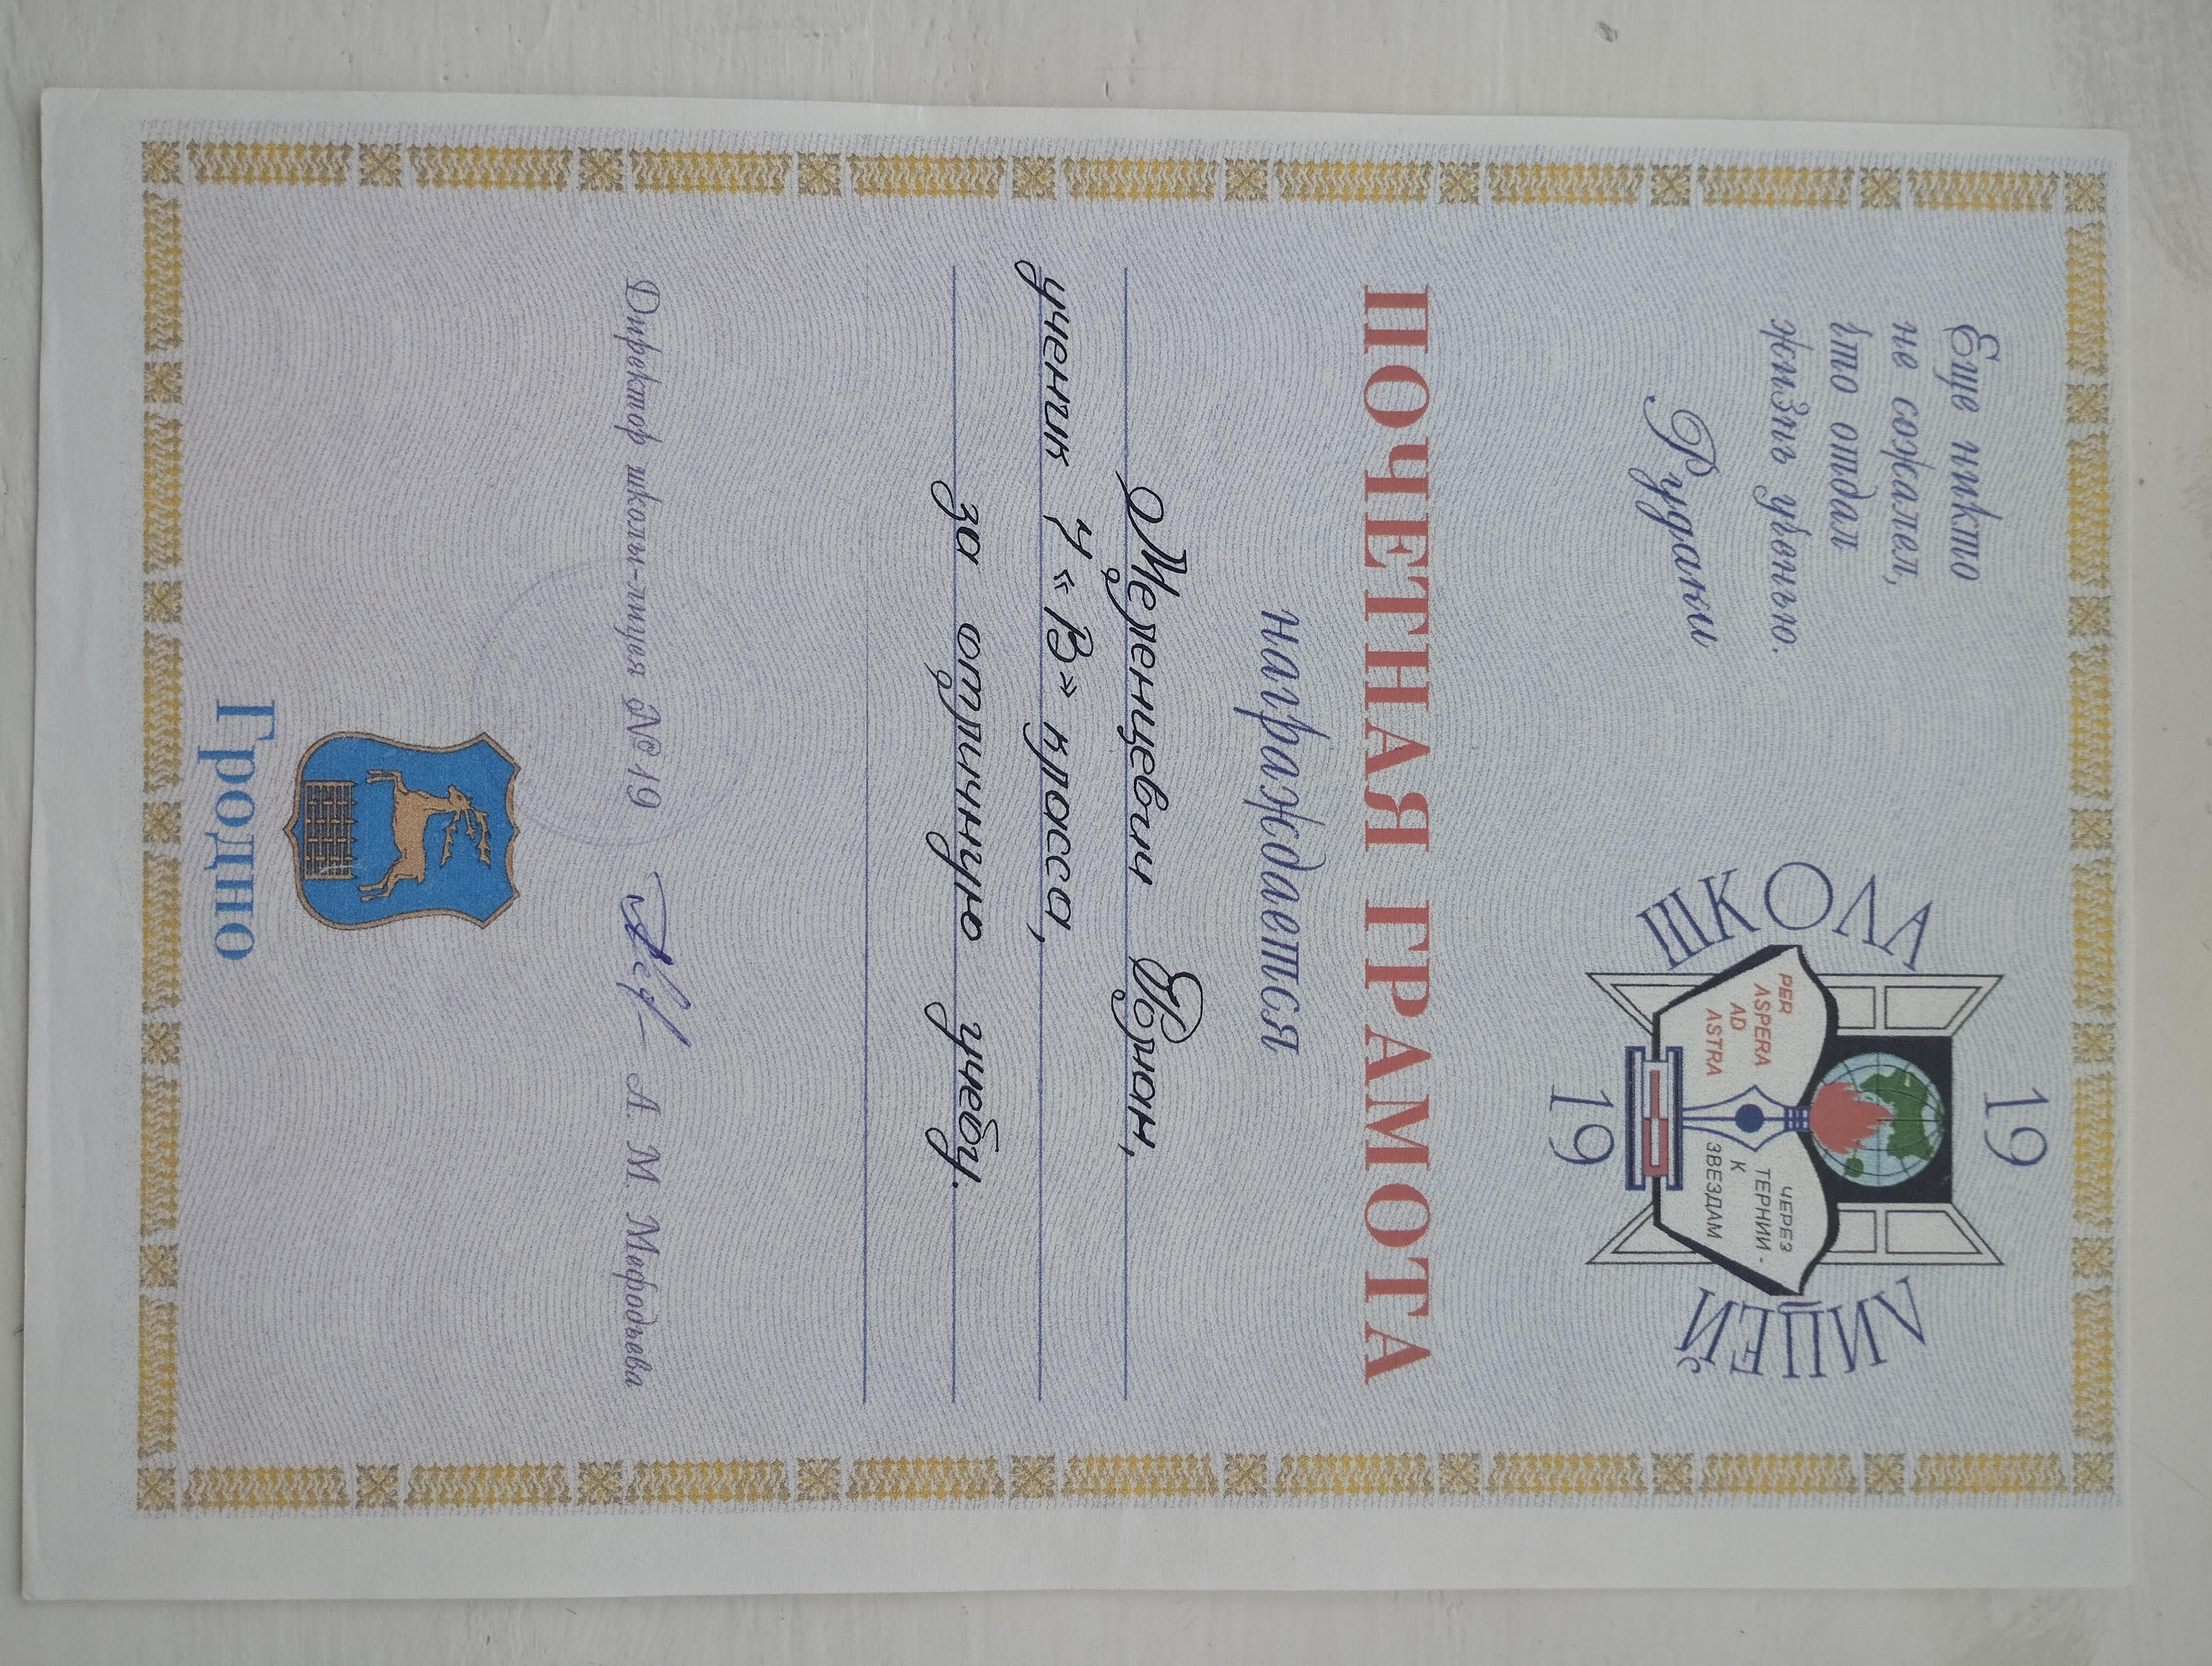 Еще никто
не сожалел,
что отдал
жизнь ученью.
Рудаки
19
ШКОЛА
ЛИЦЕЙ
PER
ASPERA
AD
ASTRA
ЧЕРЕЗ
ТЕРНИИ -
К
ЗВЕЗДАМ
19
ПОЧЕТНАЯ ГРАМОТА
награждается
Меленцевич Роман,
ученик 7 «В» класса,
за отличную учебу.
Директор школы-лицея № 19 А. М. Мефодьева
Гродно